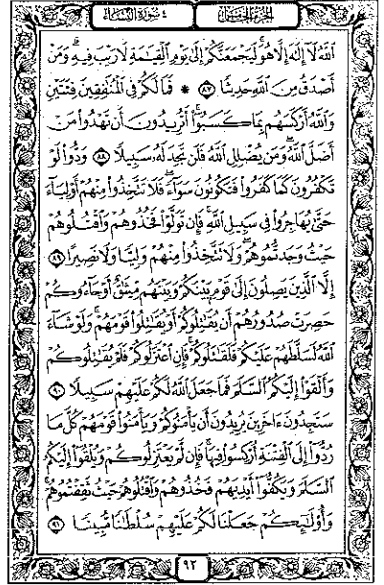 الجزء الخامس
٤ سورة النساء
ٱللَّهُ لَآ إِلَٰهَ إِلَّا هُوَ لَيَجْمَعَنَّكُمْ إِلَىٰ يَوْمِ ٱلْقِيَٰمَةِ لَا رَيْبَ فِيهِ وَمَنْ
أَصْدَقُ مِنَ ٱللَّهِ حَدِيثًا ٨٧ * فَمَا لَكُمْ فِى ٱلْمُنَٰفِقِينَ فِئَتَيْنِ
وَٱللَّهُ أَرْكَسَهُم بِمَا كَسَبُوٓا۟ أَتُرِيدُونَ أَن تَهْدُوا۟ مَنْ
أَضَلَّ ٱللَّهُ وَمَن يُضْلِلِ ٱللَّهُ فَلَن تَجِدَ لَهُۥ سَبِيلًا ٨٨ وَدُّوا۟ لَوْ
تَكْفُرُونَ كَمَا كَفَرُوا۟ فَتَكُونُونَ سَوَآءً فَلَا تَتَّخِذُوا۟ مِنْهُمْ أَوْلِيَآءَ
حَتَّىٰ يُهَاجِرُوا۟ فِى سَبِيلِ ٱللَّهِ فَإِن تَوَلَّوْا۟ فَخُذُوهُمْ وَٱقْتُلُوهُمْ
حَيْثُ وَجَدتُّمُوهُمْ وَلَا تَتَّخِذُوا۟ مِنْهُمْ وَلِيًّا وَلَا نَصِيرًا ٨٩
إِلَّا ٱلَّذِينَ يَصِلُونَ إِلَىٰ قَوْمٍۭ بَيْنَكُمْ وَبَيْنَهُم مِّيثَٰقٌ أَوْ جَآءُوكُمْ
حَصِرَتْ صُدُورُهُمْ أَن يُقَٰتِلُوكُمْ أَوْ يُقَٰتِلُوا۟ قَوْمَهُمْ وَلَوْ شَآءَ
ٱللَّهُ لَسَلَّطَهُمْ عَلَيْكُمْ فَلَقَٰتَلُوكُمْ فَإِنِ ٱعْتَزَلُوكُمْ فَلَمْ يُقَٰتِلُوكُمْ
وَأَلْقَوْا۟ إِلَيْكُمُ ٱلسَّلَمَ فَمَا جَعَلَ ٱللَّهُ لَكُمْ عَلَيْهِمْ سَبِيلًا ٩٠
سَتَجِدُونَ ءَاخَرِينَ يُرِيدُونَ أَن يَأْمَنُوكُمْ وَيَأْمَنُوا۟ قَوْمَهُمْ كُلَّ مَا
رُدُّوٓا۟ إِلَى ٱلْفِتْنَةِ أُرْكِسُوا۟ فِيهَا فَإِن لَّمْ يَعْتَزِلُوكُمْ وَيُلْقُوٓا۟ إِلَيْكُمُ
ٱلسَّلَمَ وَيَكُفُّوٓا۟ أَيْدِيَهُمْ فَخُذُوهُمْ وَٱقْتُلُوهُمْ حَيْثُ ثَقِفْتُمُوهُمْ
وَأُو۟لَٰٓئِكُمْ جَعَلْنَا لَكُمْ عَلَيْهِمْ سُلْطَٰنًا مُّبِينًا ٩١
٩٢